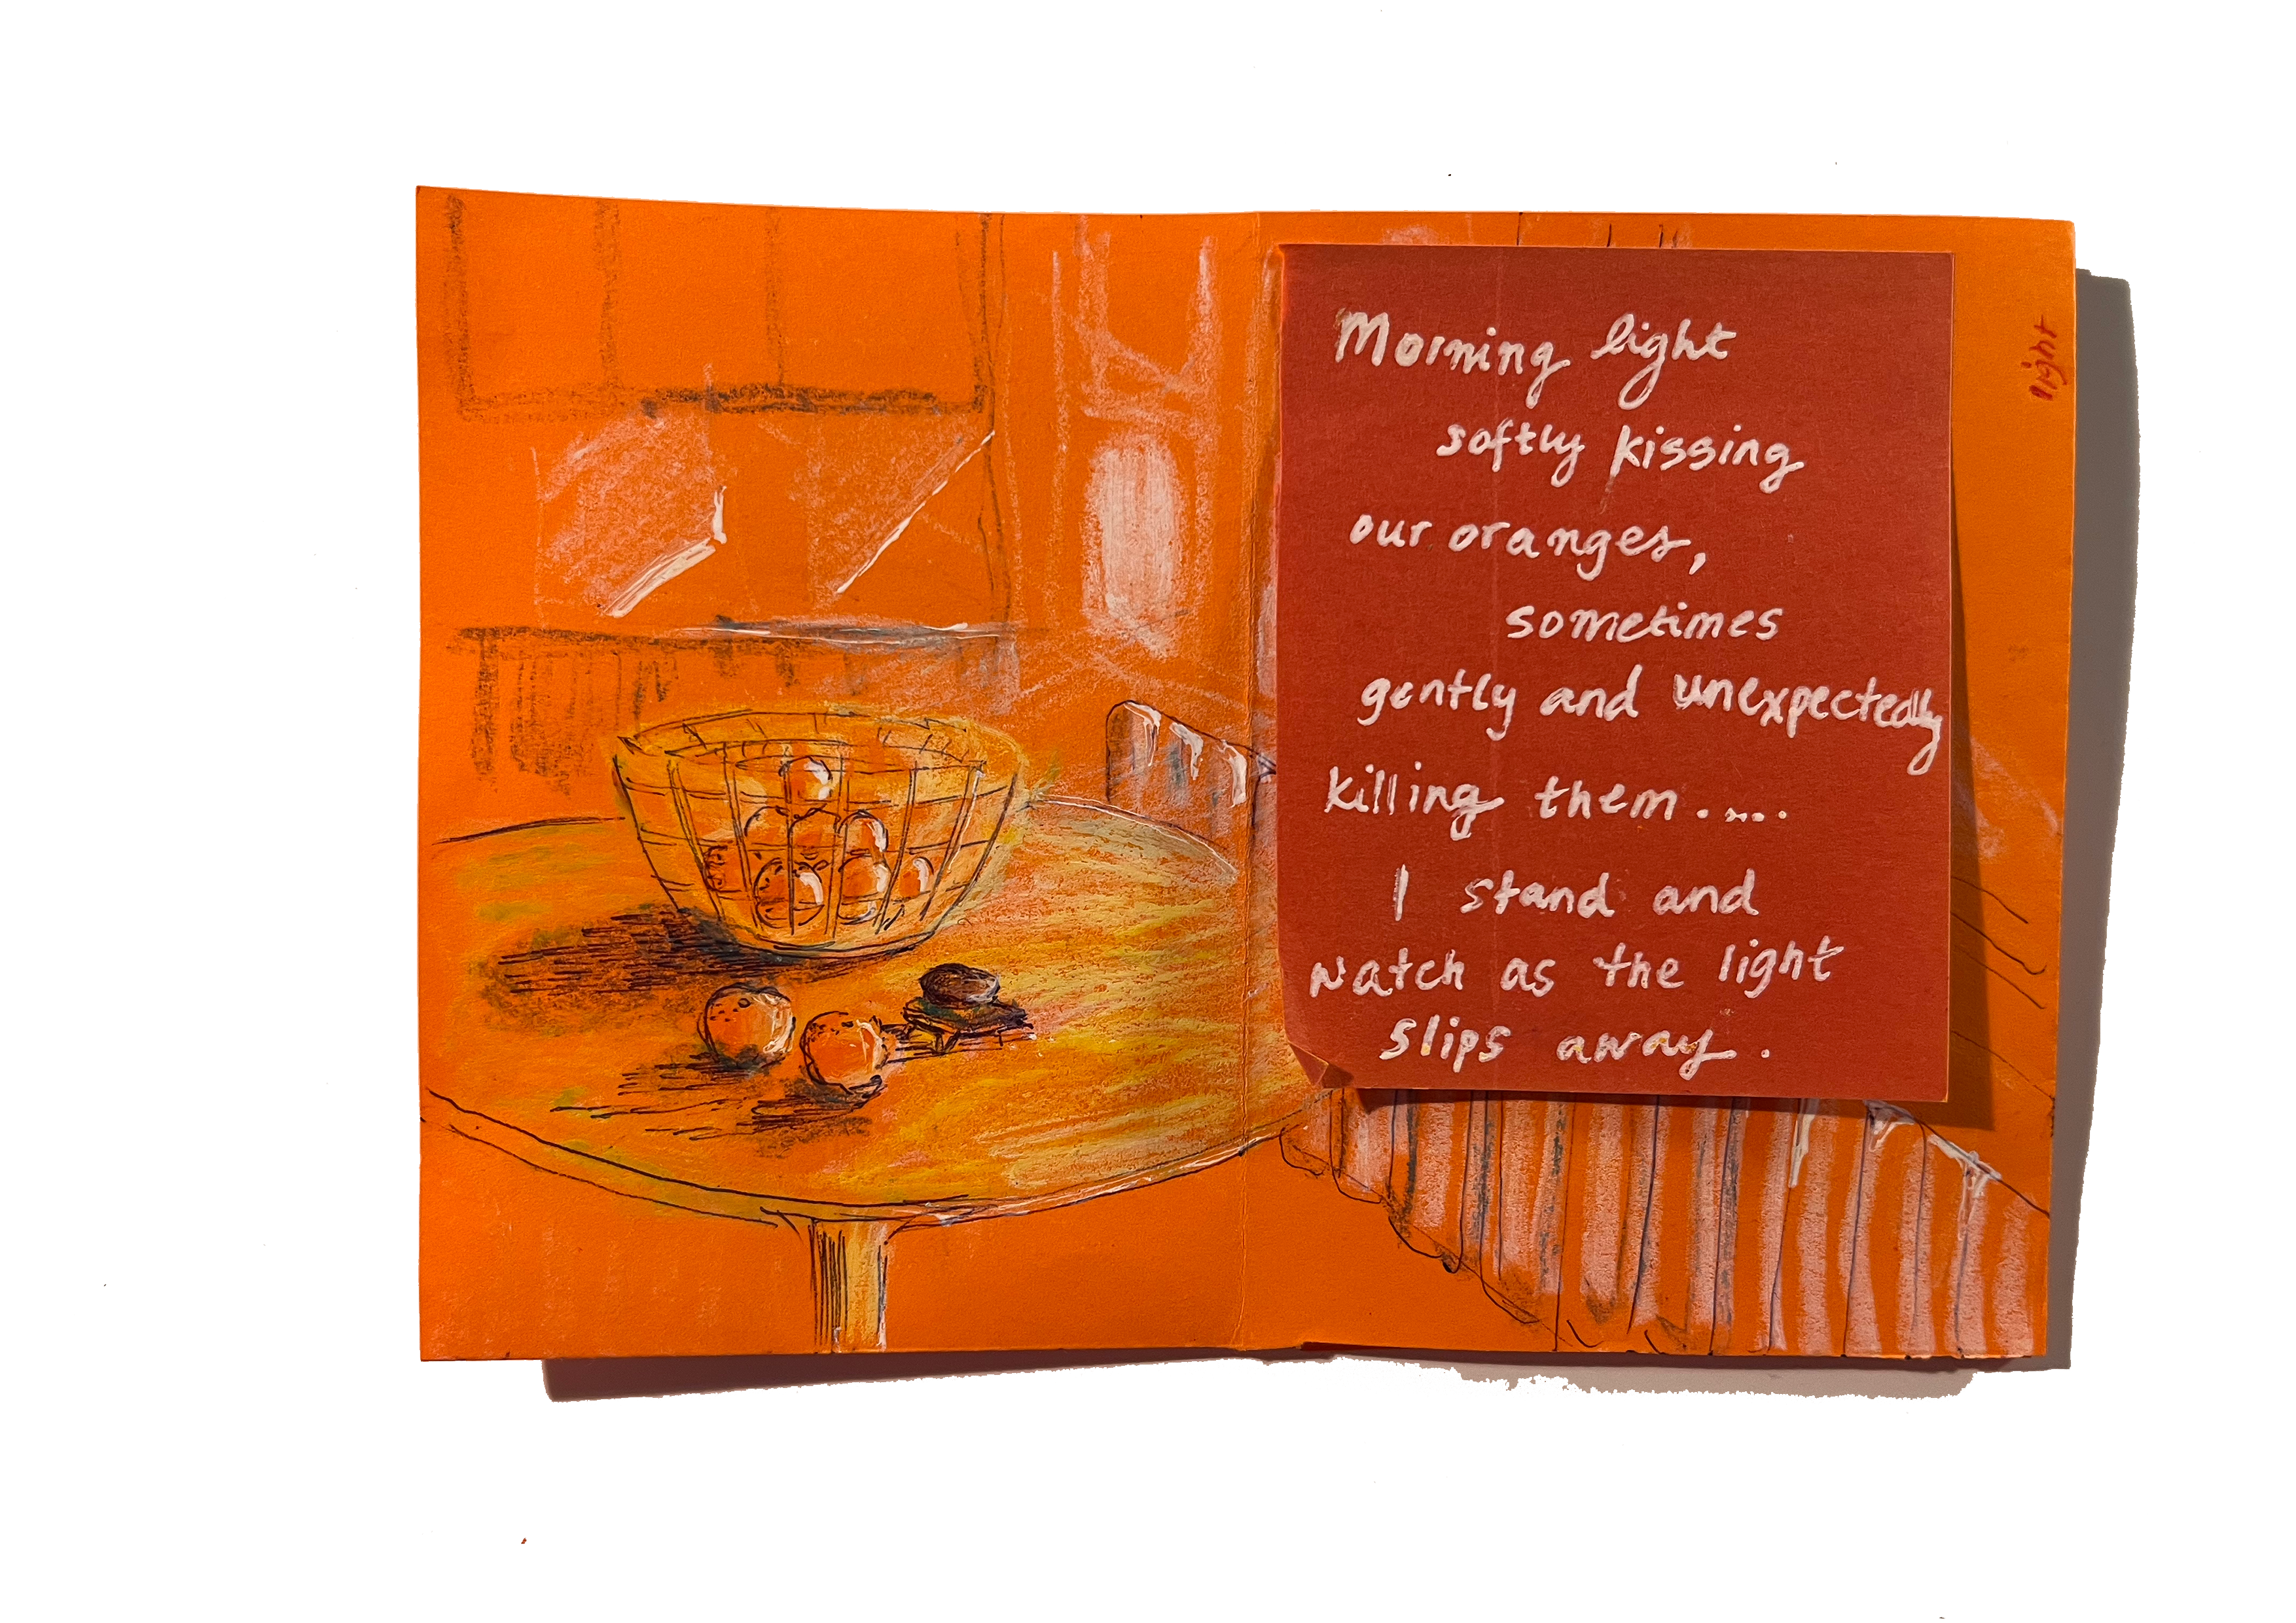 Morning light
softly kissing
our oranges,
sometimes
gently and unexpectedly
killing them.....
I stand and
watch as the light
slips away.
light